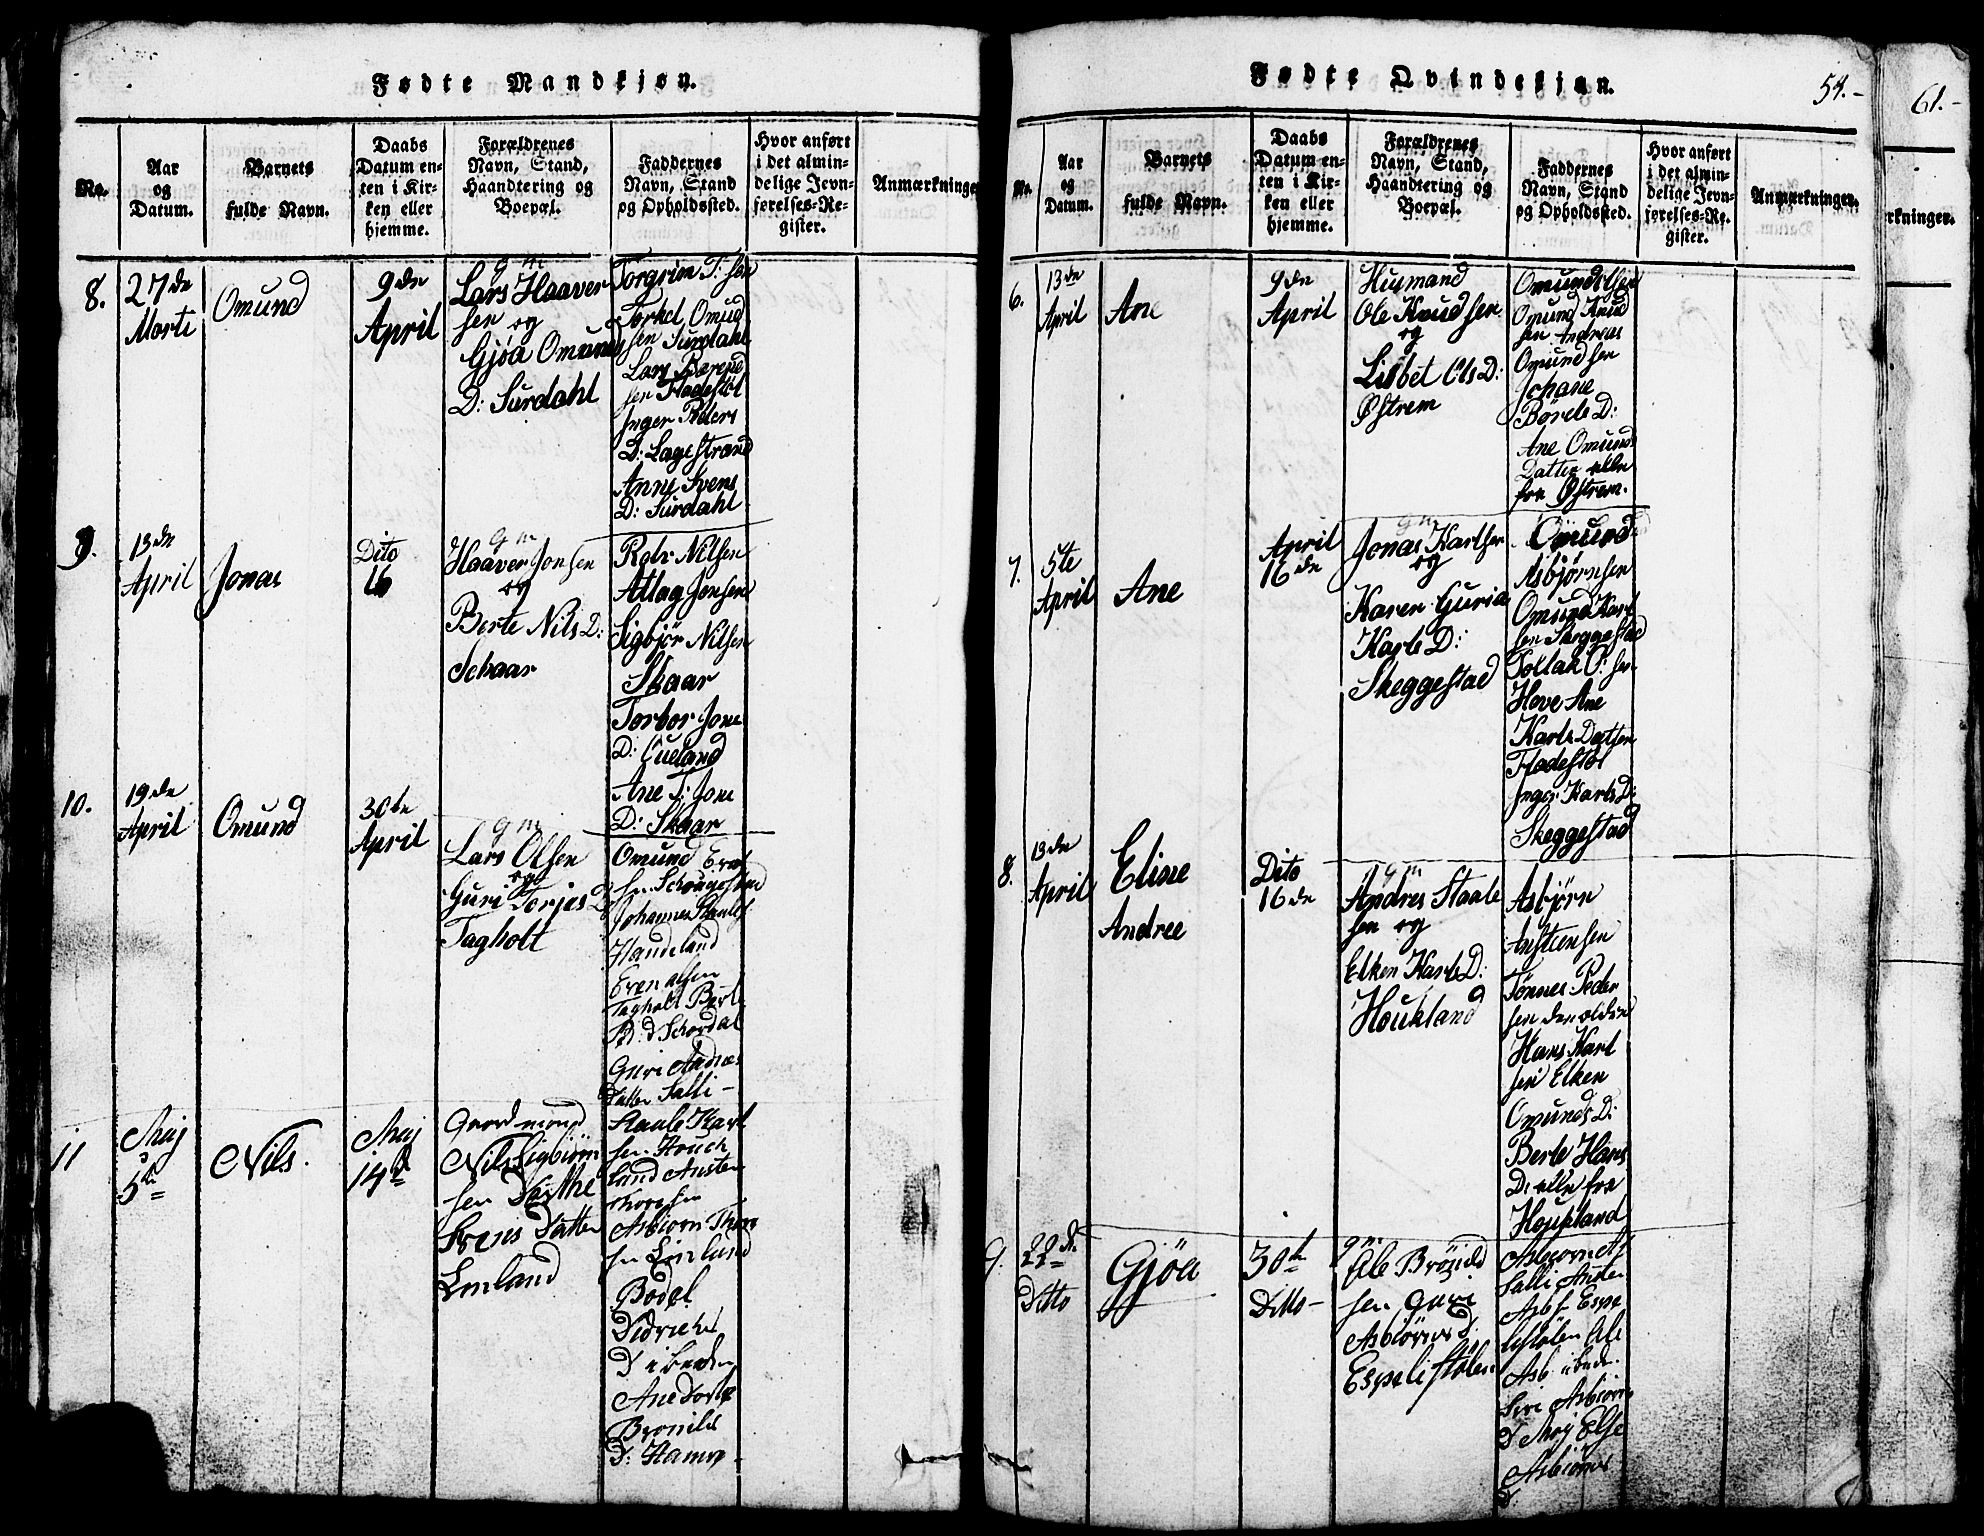 Fødte Mandkjøn.
No.
Aar
og
Datum.
Barnets
fulde Navn.
Daabs
Datum en-
ten i Kir-
ken eller
hjemme.
Forældrenes
Navn, Stand,
Haandtering og
Boepæl.
Faddernes
Navn, Stand
og Opholdssted.
Hvor anført
i det almin-
delige Jevn-
førelses-Re-
gister.
Anmærkninger
8.
27de
Marti
Omund
9de
April
g m
Lars Haaver
sen og
Gjøa Omunds
D: Surdahl
Torgrim T: sen
Torkel Omud
sen Surdahl
Lars Berend
sen Fladestøl
Inger Peders
D: Lagestrand
Anne Svens
D: Surdahl
9.
13de
April
Jonas
Dito
16
g m
Haaver Jonsen
og
Berte Nils D:
Schaar
Rolv Nilsen
Atlag Jonsen
Sigbjør Nilsen
Skaar
Torbor Jone
D: Eueland
Ane T: Jone
D: Skaar
10.
19de
April
Omund
30te
April
g m
Lars Olsen
og
Guri Torjes D
Tagholt
Omund
Johannes
Haudeland
Even
Tagholt
Guri Andreas
Datter Salli -
11
Maj
5te
Nils.
Maj
14d
Gaard mand
Nils Sigbiørn
sen
Svens Datter
Enland
Staale Karl
sen Houch
land Austen
Asbiørn
sen Enland
Bodel
Didrichs
D
Ane Dorte
Bronild
D:
Fødte Qvindekjøn.
54.-
No.
Aar
og
Datum.
Barnets
fulde Navn.
Daabs
Datum en-
ten i Kir-
ken eller
hjemme.
Forældrenes
Navn, Stand,
Haandtering og
Boepæl.
Faddernes
Navn, Stand
og Opholdssted.
Hvor anført
i det almin-
delige Jevn-
førelses-Re-
gister.
Anmærkninger.
6.
13de
April
Ane
9de
April
Husmand
Ole Knudsen
og
Lisbet Ols D:
Østrem
Omund
Omund Knud
sen Andreas
Omundsen
Johane
Børels D:
Ane Omund
Datter alle
fra Østrem.
7.
5te
April
Ane
April
16de
g m
Jonas Karlsen
og
Karen Guria
Karls D:
Skeggestad
Omund
Asbjørnsen
Omund Karl
sen Skeggestad
Tollak O: sen
Hove Ane
Karls Datter
Fladestøl
Inger Karls D:
Skeggestad
8.
13de
April
Eline
Andree
Dito
16de
g m
Andres Staale
sen og
Elken Karls D:
Houkland
Asbjørn
Anstensen
Tønnes Peder
sen den ældre
Hans Karl
sen Elken
Omunds D:
Berte Hans
D: alle fra
Houkland
9.
22de
Ditto
Gjøa
30te
Ditto -
g m
Ole Brønild
sen Guri
Asbiørns D
Espelistølen
Asbiørn
Salli Austen
Asb
Ole
Asb
Siri Asbiørns
D Møj Else
Asbiørns
D.
61.-
rkninger.